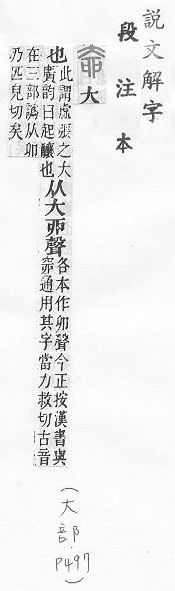 說文解字
段注本
大
也此謂虛張之大
廣韵曰起釀也
从大丣聲
各本作卯聲今正按漢書與
窌通用其字當力救切古音
在三部譌从卯
乃匹皃切矣
(大部.P497)